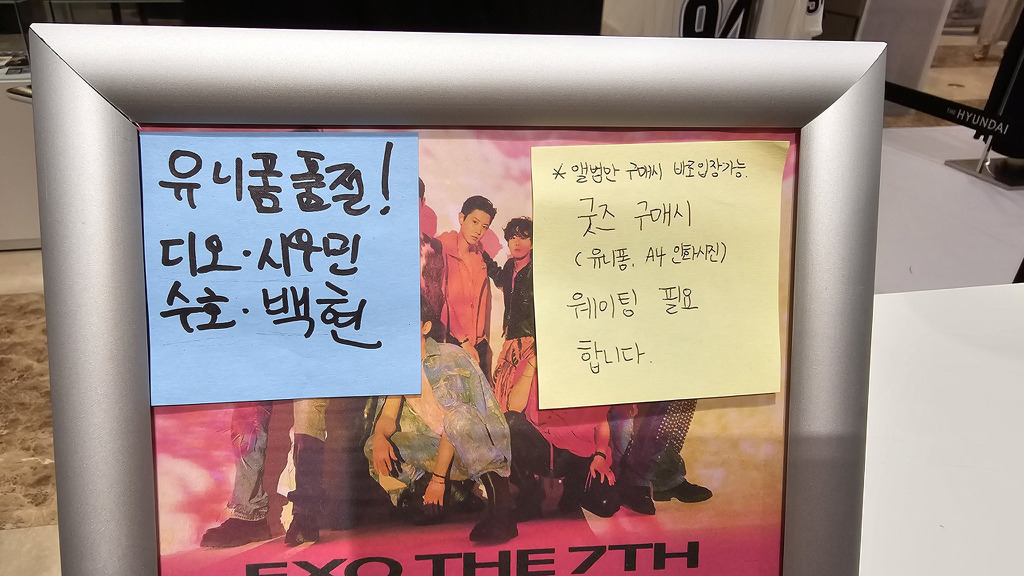 유니폼 품절!
디오·시우민
수호·백현
* 앨범만 구매시 바로입장가능.
굿즈 구매시
(유니폼, A4 인화사진)
웨이팅 필요
합니다.
EXO THE 7TH
THE HYUNDAI